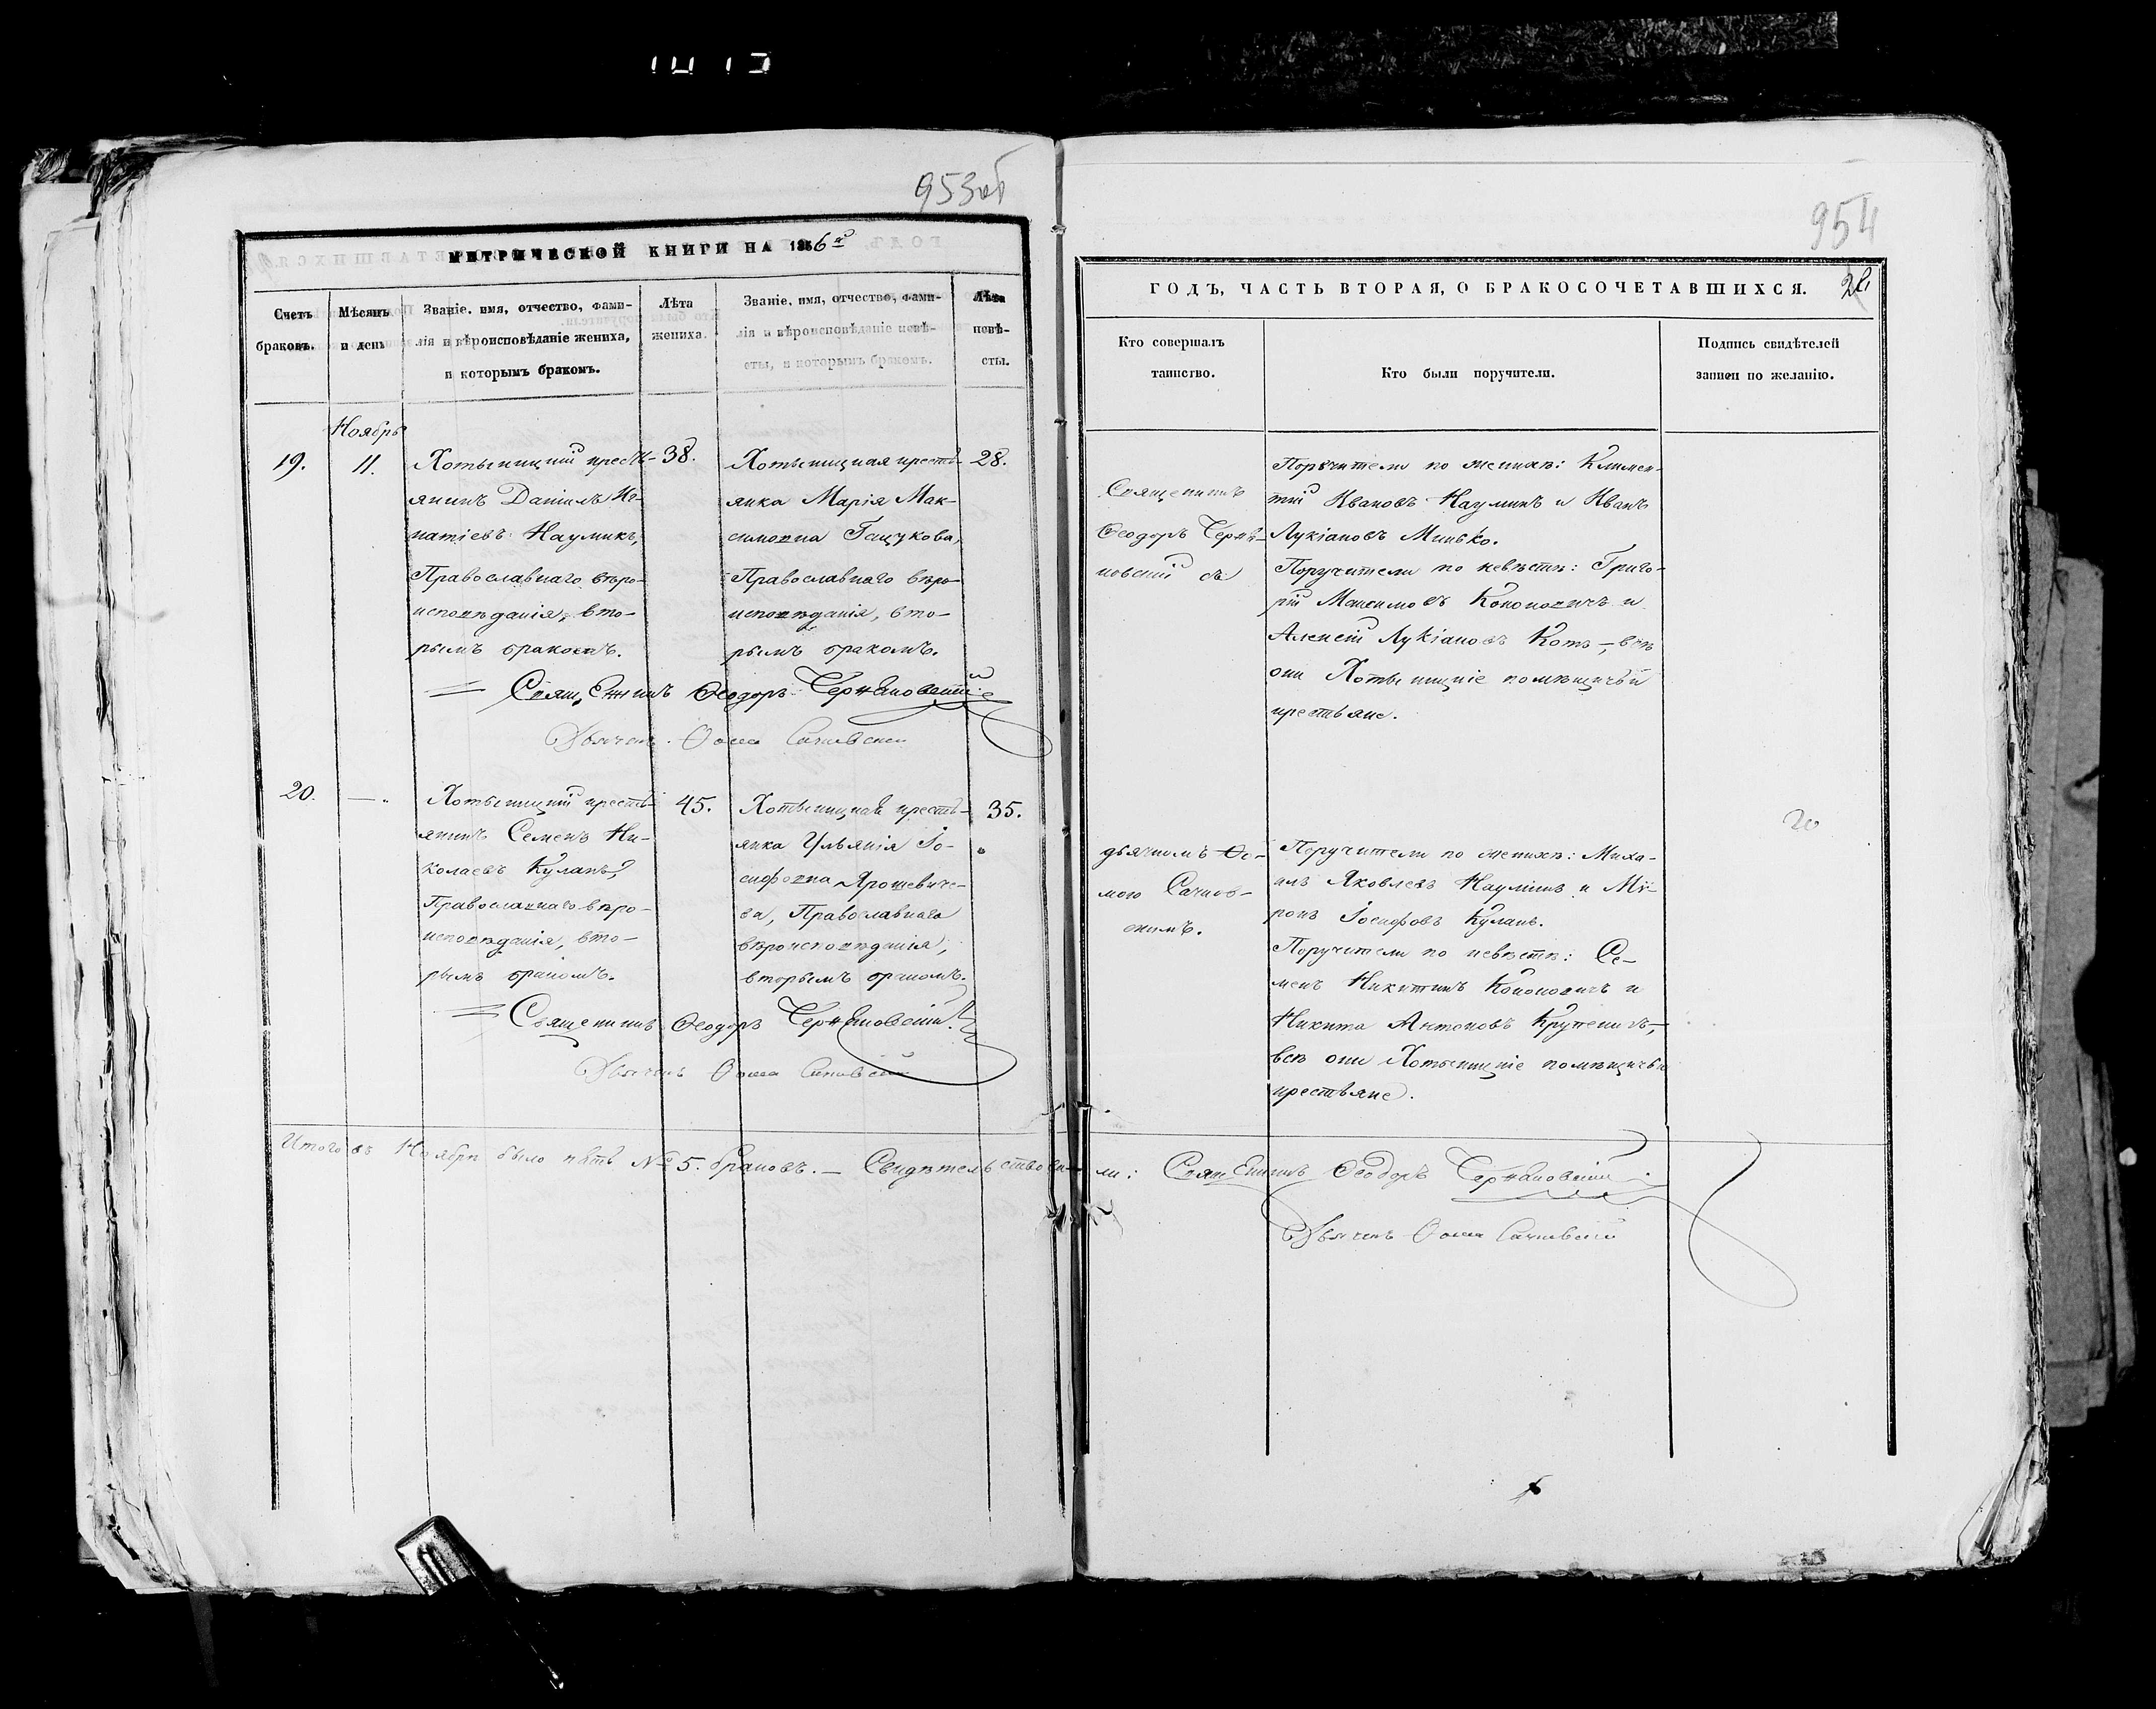 953об
МЕТРИЧЕСКОЙ КНИГИ НА 1856й
Счетъ браковъ.
Мѣсяцъ и день
Званіе, имя, отчество, фами-
лія и вѣроисповѣданіе жениха,
и которымъ бракомъ.
Лѣта
жениха.
Званіе, имя, отчество, фами-
лія и вѣроисповѣданіе невѣ-
сты, и которымъ бракомъ.
Лѣта
невѣ-
сты.
Ноябрь
19.
11.
Хотыницкій кресть-
янинъ Даніилъ Иг-
натіевъ Наумикъ,
Православнаго вѣро-
исповѣданія, вто-
рымъ бракомъ.
38.
Хотыницкая кресть-
янка Марія Мак-
симовна Гацукова,
Православнаго вѣро-
исповѣданія, вто-
рымъ бракомъ.
28.
Священникъ Ѳеодоръ
Дьячекъ Ѳома
20.
—
Хотыницкій кресть-
янинъ Семенъ Ни-
колаевъ Куланъ,
Православнаго вѣро-
исповѣданія, вто-
рымъ бракомъ.
45.
Хотыницкая кресть-
янка Ульянія Іо-
сифовна Ярошевиче-
ва, Православнаго
вѣроисповѣданія,
вторымъ бракомъ.
35.
Священникъ Ѳеодоръ
Дьячекъ Ѳома
Итого въ Ноябрѣ было пять № 5. браковъ. — Свидѣтельствова-
954
ГОДЪ, ЧАСТЬ ВТОРАЯ, О БРАКОСОЧЕТАВШИХСЯ.
Кто совершалъ
таинство.
Кто были поручители.
Подпись свидѣтелей
записи по желанію.
Священникъ
Ѳеодоръ
съ
Поручители по женихѣ: Климен-
тій Ивановъ Наумикъ и Иванъ
Лукіановъ Минько.
Поручители по невѣстѣ: Григо-
рій Максимовъ Кононовичъ и
Алексій Лукіановъ Котъ, — всѣ
они Хотыницкіе помѣщичьи
крестьяне.
дьячкомъ Ѳо-
мою Сачков-
скимъ.
Поручители по женихѣ: Миха-
илъ Яковлевъ Наумикъ и Мѵ-
ронъ Іосифовъ Куланъ.
Поручители по невѣстѣ: Се-
менъ Никитинъ Кононовичъ и
Никита Антоновъ Крупеничъ, —
всѣ они Хотыницкіе помѣщичьи
крестьяне.
ли: Священникъ Ѳеодоръ
Дьячекъ Ѳома